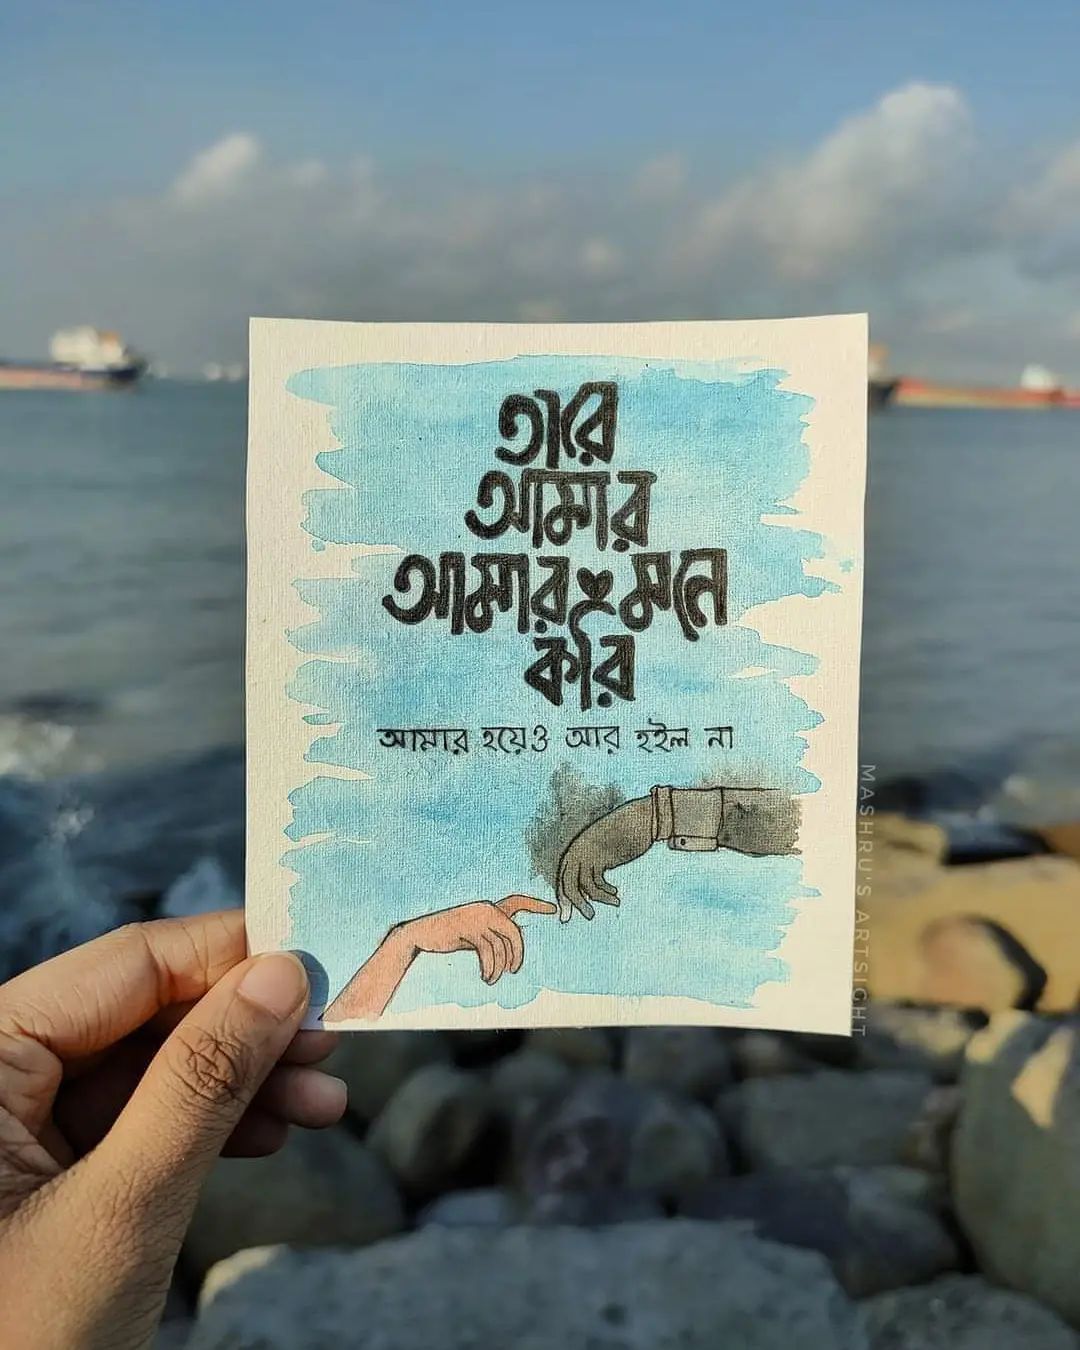 তারে
আমার
আমার মনে
করি
আমার হয়েও আর হইল না
MASHRU'S ARTSIGHT